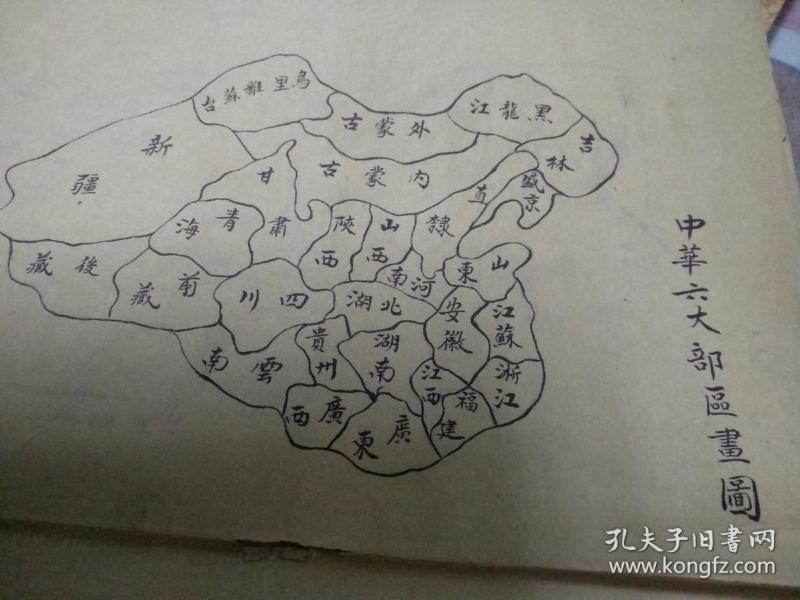 中華六大部區畫圖
烏里雅蘇台
外蒙古
黑龍江
吉林
盛京
新疆
内蒙古
甘肅
青海
陝西
山西
直隸
山東
河南
後藏
前藏
四川
湖北
安徽
江蘇
雲南
貴州
湖南
江西
浙江
福建
廣西
廣東
孔夫子旧书网
www.kongfz.com